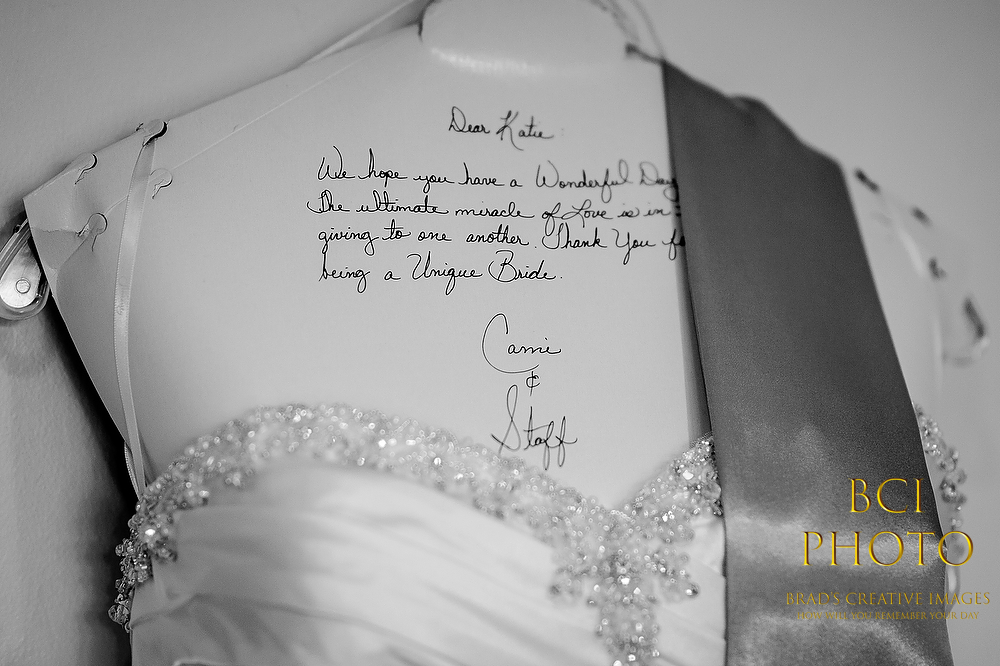 Dear Katie:
We hope you have a Wonderful Day
The ultimate miracle of Love is in
giving to one another. Thank You
being a Unique Bride.
Carrie
&
Staff
BCI
PHOTO
BRAD'S CREATIVE IMAGES
HOW WILL YOU REMEMBER YOUR DAY